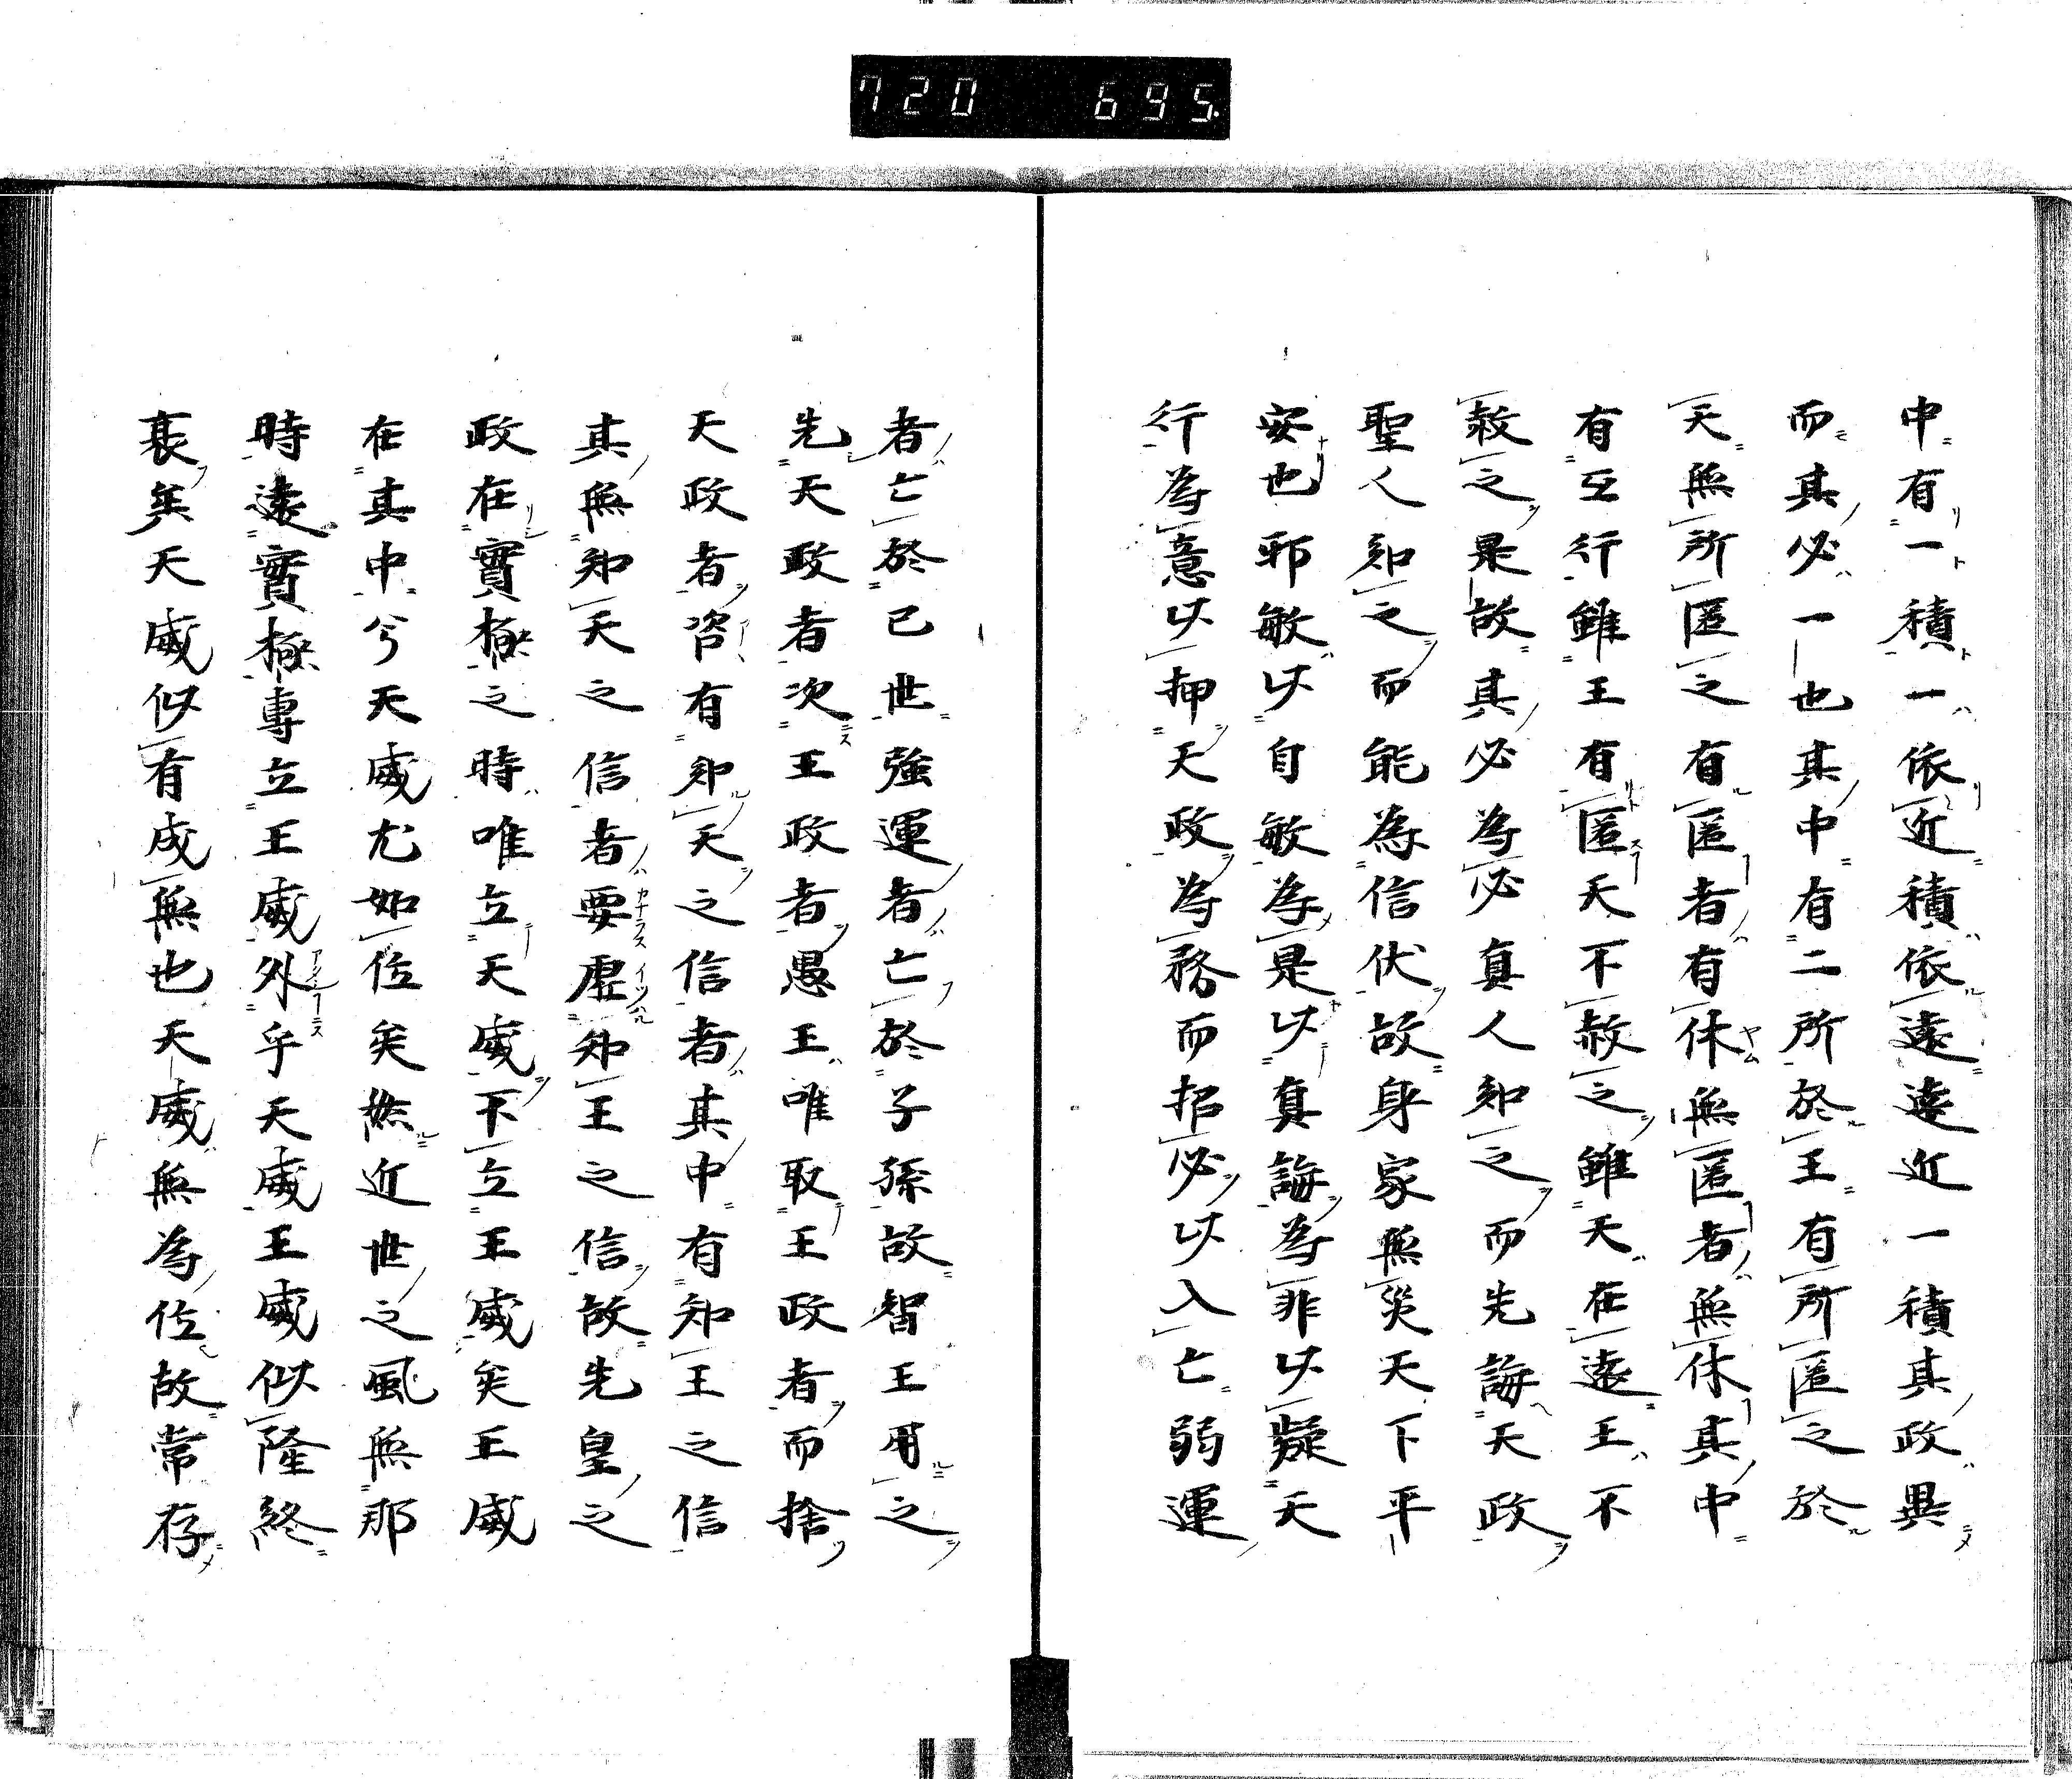 720 695.
中有一積一依近積依遠遠近一積其政異
而其必一也其中有二所於王有所匿之於
天無所匿之有匿者有休無匿者無休其中
有互行雖王有匿天不赦之雖天在遠王不
赦之是故其必為必真人知之而先誨天政
聖人知之而能為信伏故身家無災天下平
安也邪敏以自敏為是以真誨為非以疑天
行為意以押天政為務而招必以入亡弱運
者亡於已世強運者亡於子孫故智王用之
先天政者次王政者愚王唯取王政者而捨
天政者咨有知天之信者其中有知王之信
其無知天之信者要虛知王之信故先皇之
政在實極之時唯立天威下立王威矣王威
在其中兮天威尤如位矣然近世之風無那
時遠實極專立王威外乎天威王威似隆終
衰矣天威似有成無也天威無為位故常存